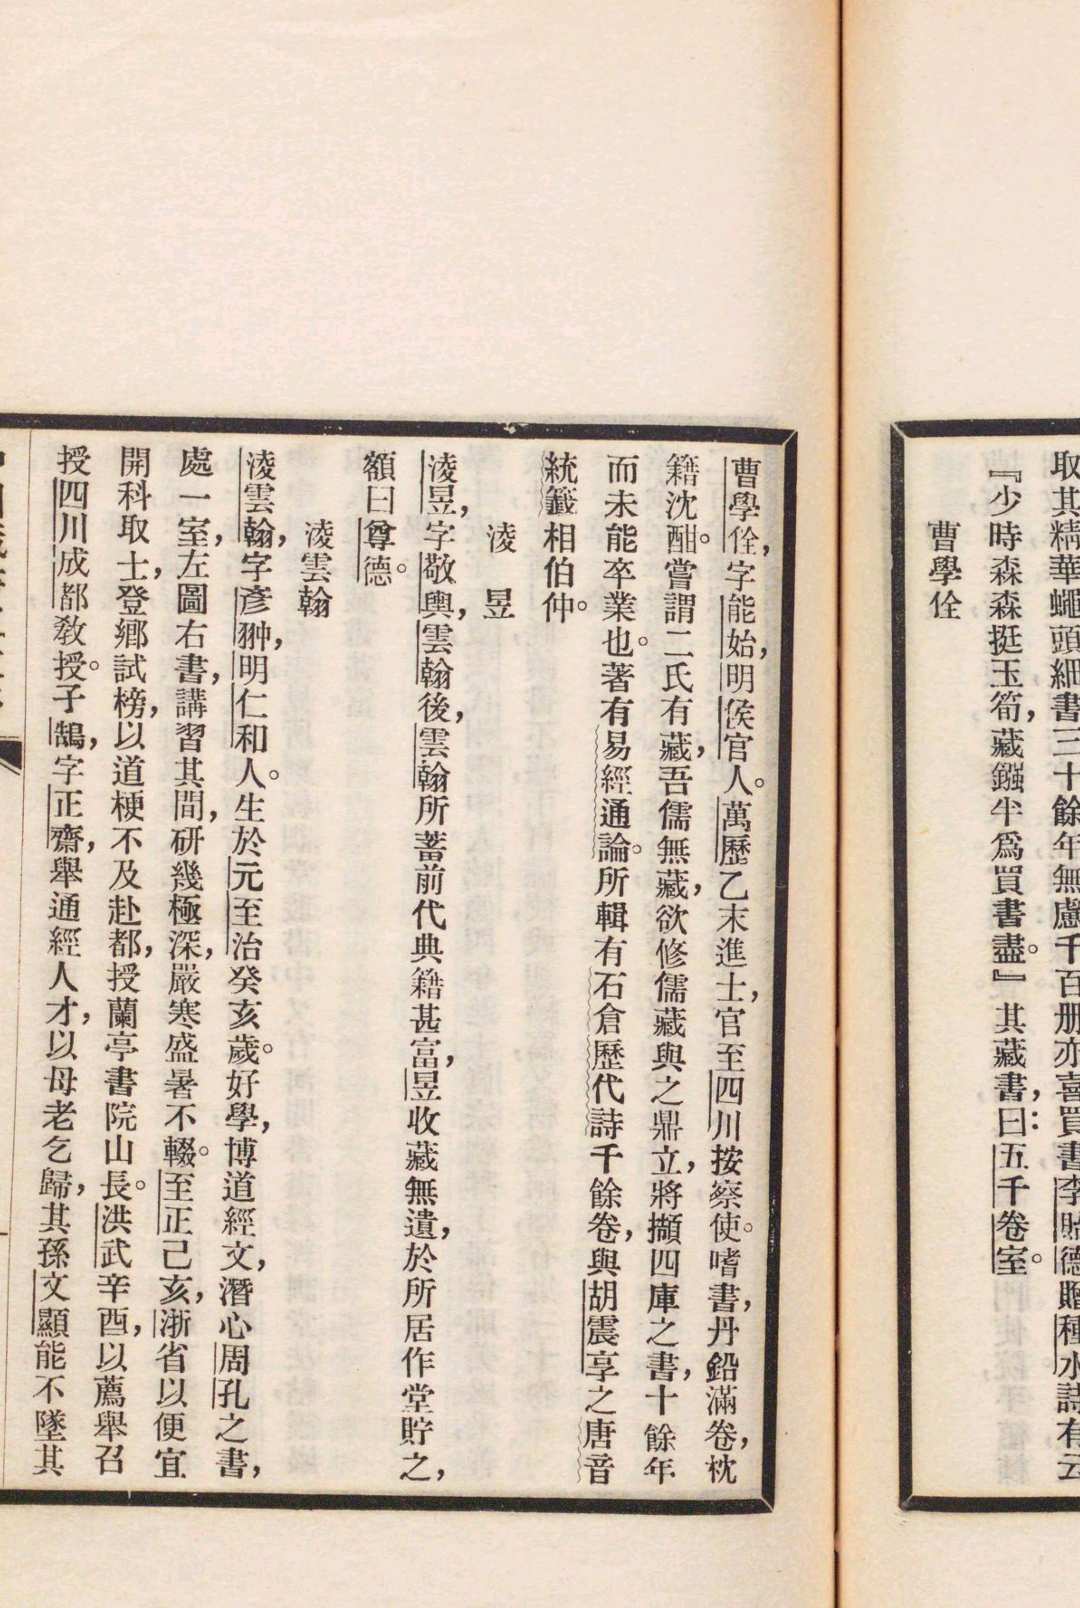 取其精華蠅頭細書三十餘年無慮千百册亦喜買書李貽德贈種水詩有云
『少時森森挺玉筍，藏鏹半爲買書盡。』其藏書，曰：五千卷室。
曹學佺
曹學佺，字能始，明侯官人。萬歷乙未進士，官至四川按察使。嗜書，丹鉛滿卷，枕
籍沈酣。嘗謂二氏有藏，吾儒無藏，欲修儒藏與之鼎立，將擷四庫之書，十餘年
而未能卒業也。著有易經通論。所輯有石倉歷代詩千餘卷，與胡震享之唐音
統籤相伯仲。
淩昱
淩昱，字敬輿，雲翰後，雲翰所蓄前代典籍甚富，昱收藏無遺，於所居作堂貯之，
額曰尊德。
淩雲翰
淩雲翰，字彥翀，明仁和人。生於元至治癸亥歲。好學，博道經文，潛心周孔之書，
處一室，左圖右書，講習其間，研幾極深，嚴寒盛暑不輟。至正己亥，浙省以便宜
開科取士，登鄉試榜，以道梗不及赴都，授蘭亭書院山長。洪武辛酉，以薦舉召
授四川成都敎授。子鵠，字正齋，舉通經人才，以母老乞歸，其孫文顯能不墜其